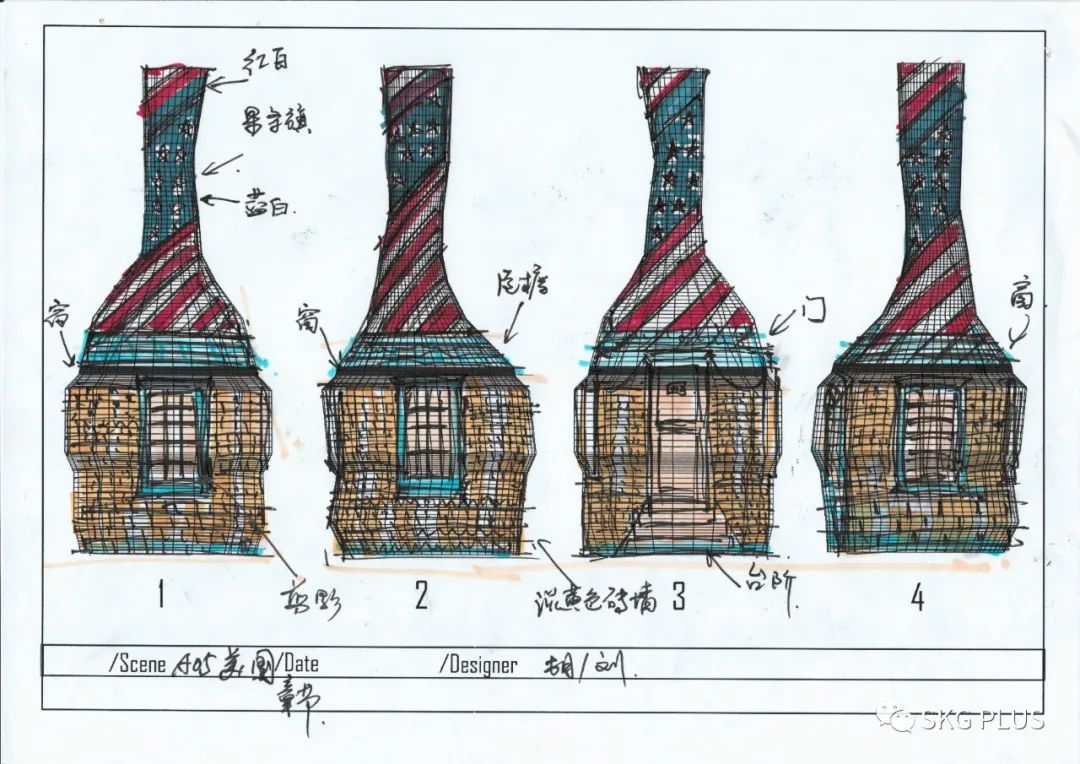 红白
星字旗
蓝白.
窗
窗
屋檐
门
窗
1
2
3
4
剪影
淡黄色砖墙
台阶.
/Scene A05 美国 /Date
/Designer 胡/刘.
章节.
SKG PLUS